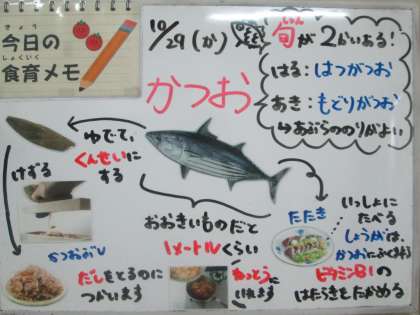 きょう
今日の
しょくいく
食育メモ
10/29(か)
かつお
しゅん
旬が2かいある!
はる:はつがつお
あき:もどりがつお
↳あぶらののりがよい
ゆでて、
くんせいに
する
けずる
かつおぶし
だしをとるのに
つかいます
おおきいものだと
1メートルくらい
なっとうに
いれます
たたき
いっしょに
たべる
しょうがは、
かつおにふくまれる
ビタミンB1の
はたらきをたかめる